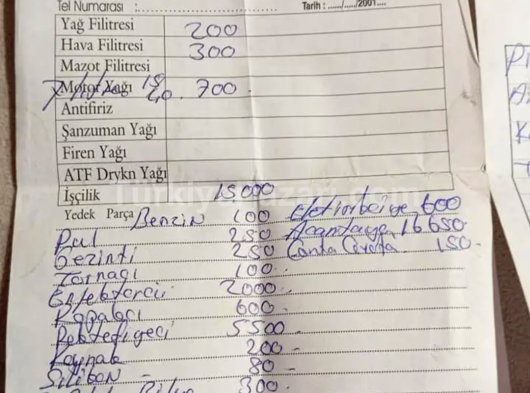 Tel Numarası :
Tarih : ...../...../2001....
Yağ Filitresi 200
Hava Filitresi 300
Mazot Filitresi
Motor Yağı 700
Antifiriz
Şanzuman Yağı
Firen Yağı
ATF Drykn Yağı
İşçilik 15,000
Yedek Parça Benzin 100 600
Pul 250 16 650
Gezinti 250 Conta 150
Tornacı 100
Enjektörcü 2000
Kapakcı 600
Rektefiyeci 5500
Kaynak 200
Silikon 80
300